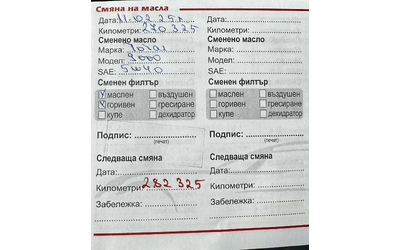 Смяна на масла
Дата: 11.02.25г. Дата:
Километри: 270 325 Километри:
Сменено масло Сменено масло
Марка: Total Марка:
Модел: 9000 Модел:
SAE: 5w40 SAE:
Сменен филтър Сменен филтър
маслен въздушен маслен въздушен
горивен гресиране горивен гресиране
купе дехидратор купе дехидратор
Подпис: Подпис:
(печат) (печат)
Следваща смяна Следваща смяна
Дата: Дата:
Километри: 282 325 Километри:
Забележка: Забележка: